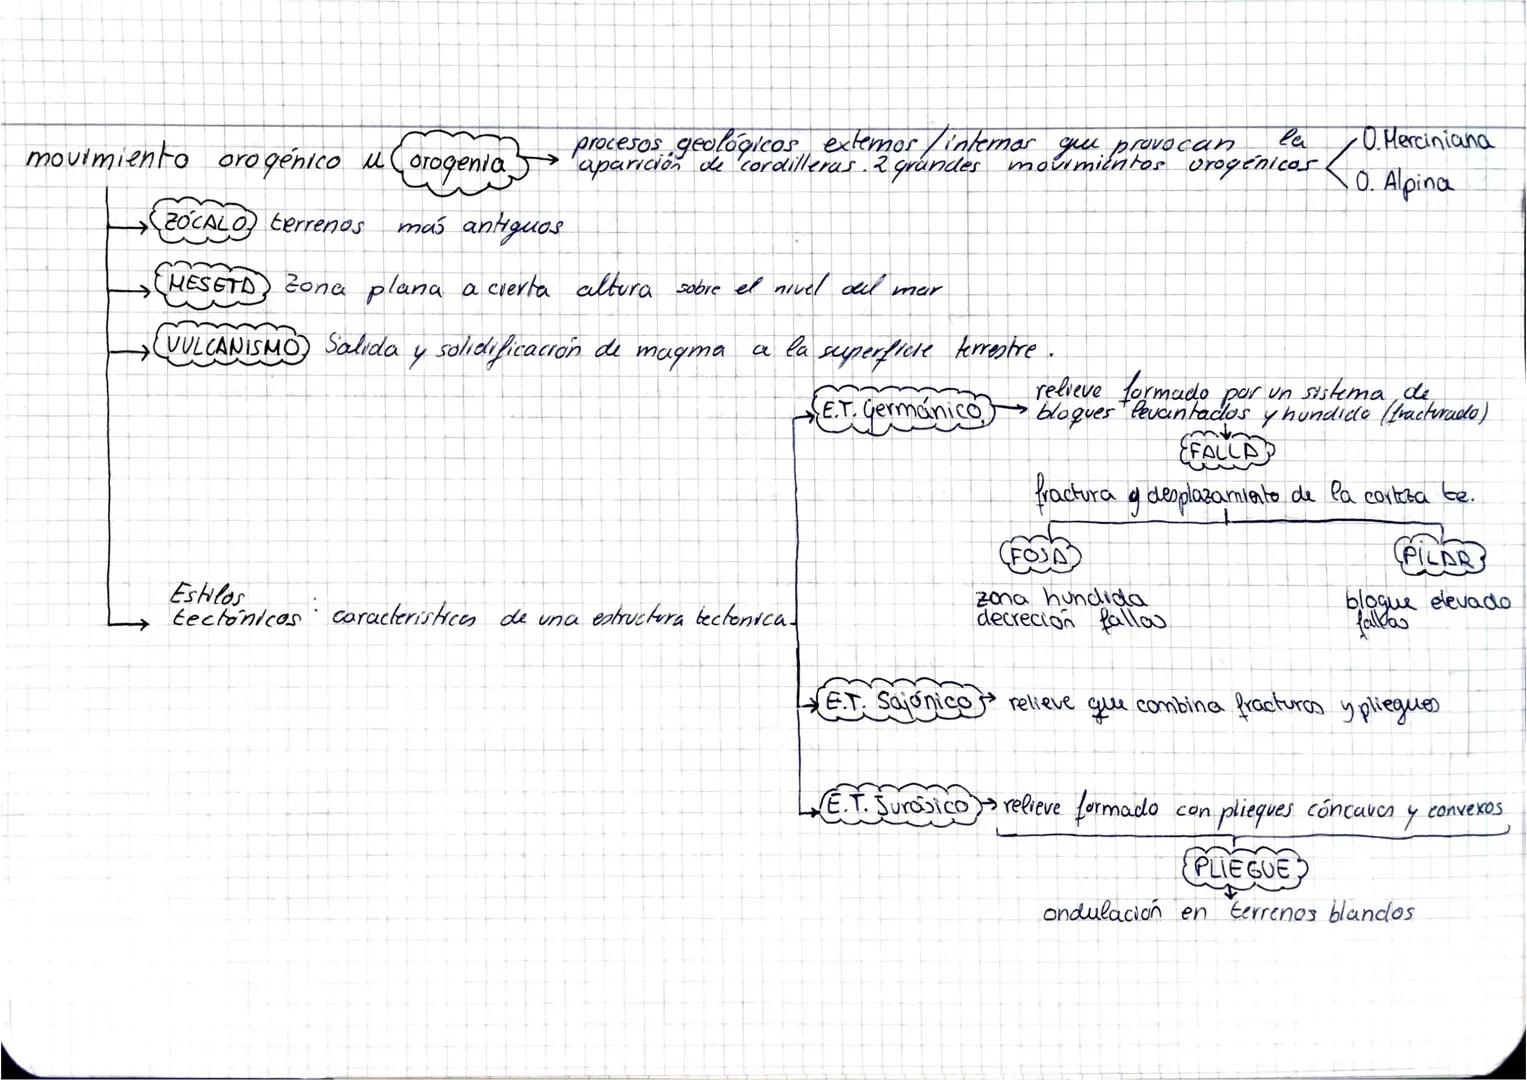 movimiento orogénico u orogenia → procesos geológicos externos/internos que provocan la
aparición de cordilleras. 2 grandes movimientos orogénicos
O. Herciniana
O. Alpina
ZÓCALO terrenos más antiguos
MESETA Zona plana a cierta altura sobre el nivel del mar
VULCANISMO Salida y solidificación de magma a la superficie terrestre.
Estilos
tectónicos : características de una estructura tectónica.
E.T. Germánico → relieve formado por un sistema de
bloques levantados y hundido (fracturado)
FALLA
fractura y desplazamiento de la corteza te.
FOSA
zona hundida
decreción fallas
PILAR
bloque elevado
fallas
E.T. Sajónico → relieve que combina fracturas y pliegues
E.T. Jurásico → relieve formado con pliegues cóncavos y convexos
PLIEGUE
ondulación en terrenos blandos